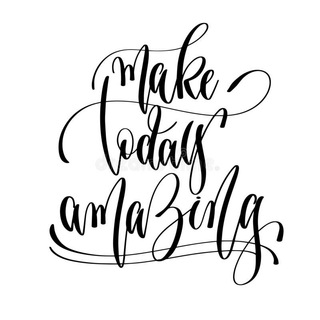 make
today
amazing